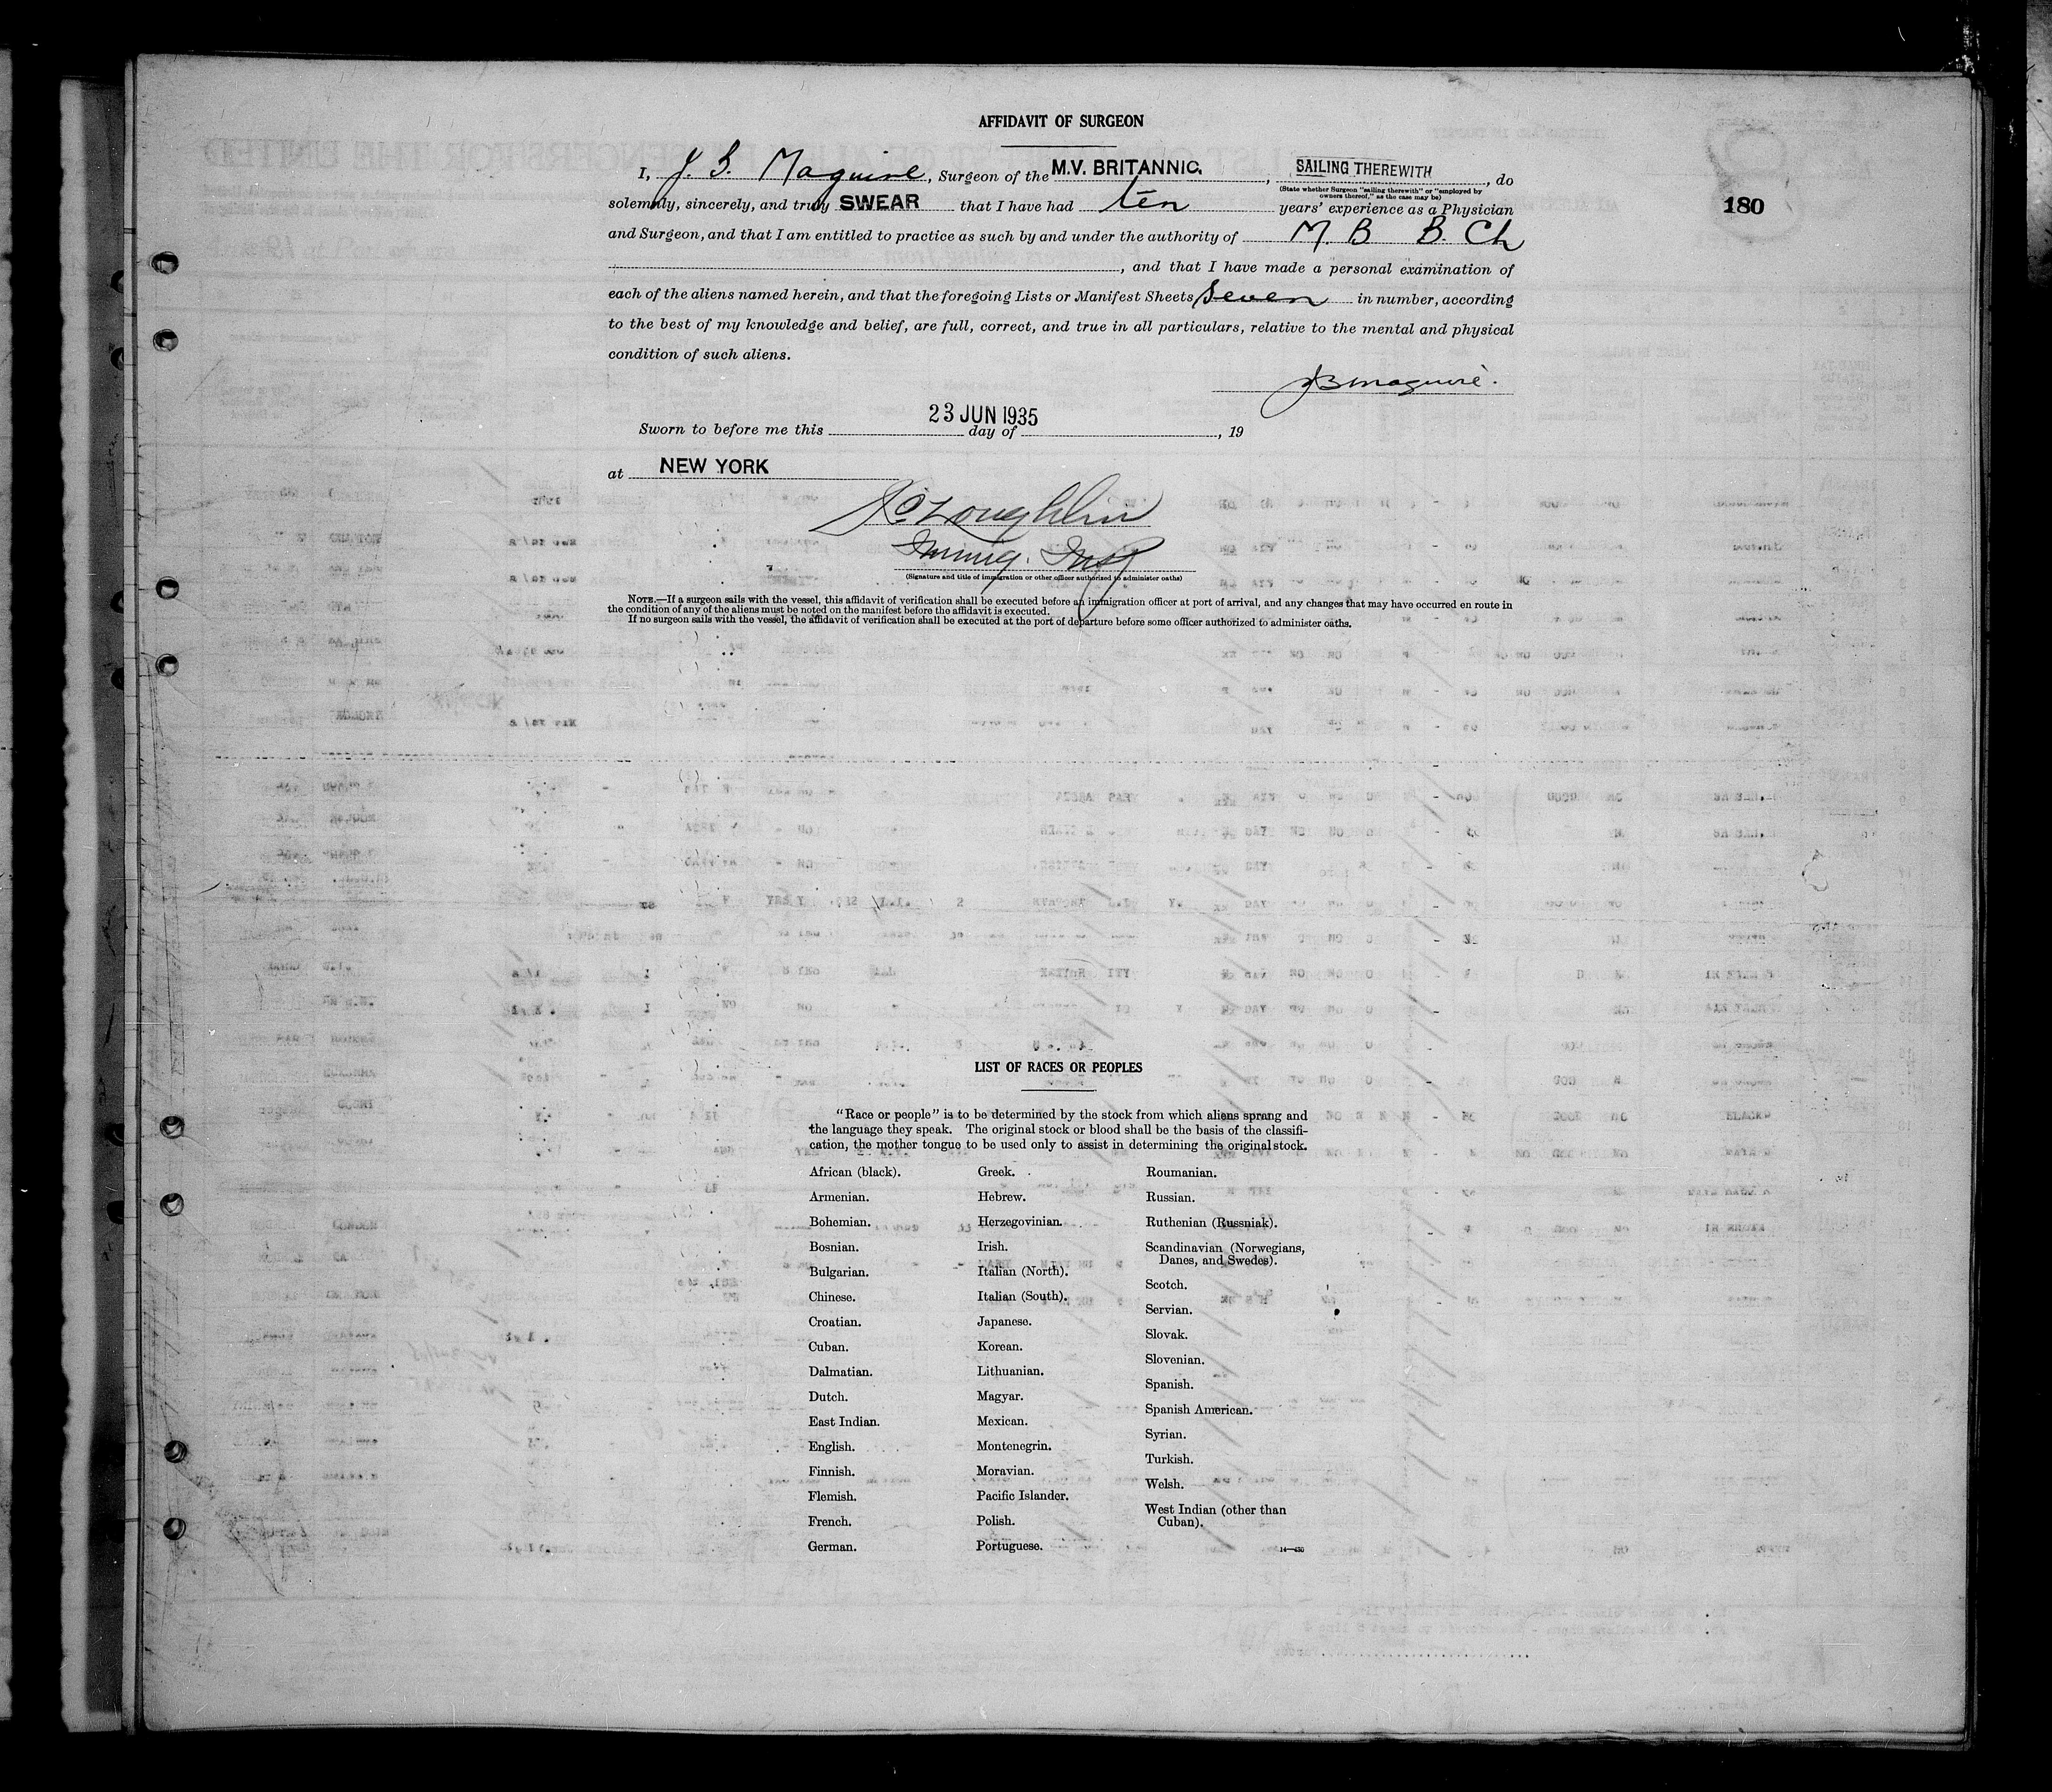 AFFIDAVIT OF SURGEON
180
I, J. B. Maguire, Surgeon of the M.V. BRITANNIC, SAILING THEREWITH, do
(State whether Surgeon "sailing therewith" or "employed by
owners thereof," as the case may be)
solemnly, sincerely, and truly SWEAR that I have had ten years' experience as a Physician
and Surgeon, and that I am entitled to practice as such by and under the authority of M. B B. Ch
, and that I have made a personal examination of
each of the aliens named herein, and that the foregoing Lists or Manifest Sheets seven in number, according
to the best of my knowledge and belief, are full, correct, and true in all particulars, relative to the mental and physical
condition of such aliens.
JBMaguire.
23 JUN 1935
Sworn to before me this day of , 19
at NEW YORK
Loughlin
Immig. Insp
(Signature and title of immigration or other officer authorized to administer oaths)
NOTE.—If a surgeon sails with the vessel, this affidavit of verification shall be executed before an immigration officer at port of arrival, and any changes that may have occurred en route in
the condition of any of the aliens must be noted on the manifest before the affidavit is executed.
If no surgeon sails with the vessel, the affidavit of verification shall be executed at the port of departure before some officer authorized to administer oaths.
LIST OF RACES OR PEOPLES
"Race or people" is to be determined by the stock from which aliens sprang and
the language they speak. The original stock or blood shall be the basis of the classifi-
cation, the mother tongue to be used only to assist in determining the original stock.
African (black).
Armenian.
Bohemian.
Bosnian.
Bulgarian.
Chinese.
Croatian.
Cuban.
Dalmatian.
Dutch.
East Indian.
English.
Finnish.
Flemish.
French.
German.
Greek.
Hebrew.
Herzegovinian.
Irish.
Italian (North).
Italian (South).
Japanese.
Korean.
Lithuanian.
Magyar.
Mexican.
Montenegrin.
Moravian.
Pacific Islander.
Polish.
Portuguese.
Roumanian.
Russian.
Ruthenian (Russniak).
Scandinavian (Norwegians,
Danes, and Swedes).
Scotch.
Servian.
Slovak.
Slovenian.
Spanish.
Spanish American.
Syrian.
Turkish.
Welsh.
West Indian (other than
Cuban).
14—430